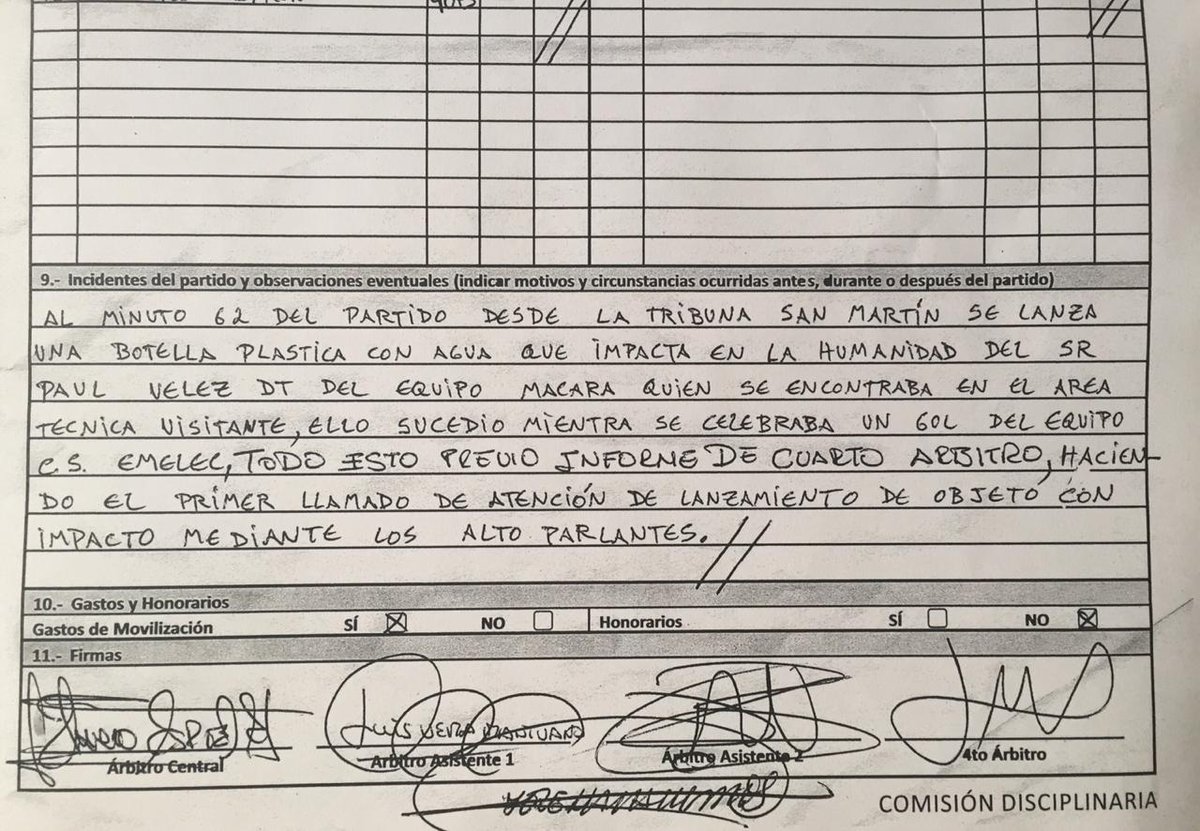 9.- Incidentes del partido y observaciones eventuales (indicar motivos y circunstancias ocurridas antes, durante o después del partido)
AL MINUTO 62 DEL PARTIDO DESDE LA TRIBUNA SAN MARTÍN SE LANZA
UNA BOTELLA PLASTICA CON AGUA QUE IMPACTA EN LA HUMANIDAD DEL SR
PAUL VELEZ DT DEL EQUIPO MACARA QUIEN SE ENCONTRABA EN EL AREA
TECNICA VISITANTE, ELLO SUCEDIO MIENTRA SE CELEBRABA UN GOL DEL EQUIPO
C.S. EMELEC, TODO ESTO PREVIO INFORME DE CUARTO ARBITRO, HACIEN-
DO EL PRIMER LLAMADO DE ATENCIÓN DE LANZAMIENTO DE OBJETO CON
IMPACTO MEDIANTE LOS ALTO PARLANTES. //
10.- Gastos y Honorarios
Gastos de Movilización SÍ NO Honorarios SÍ NO
11.- Firmas
LUÍS VERA
Árbitro Central Árbitro Asistente 1 Árbitro Asistente 2 4to Árbitro
COMISIÓN DISCIPLINARIA